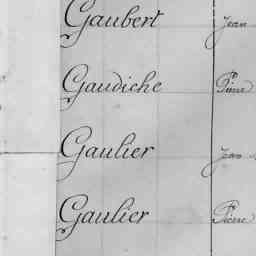 Gaubert Jean
Gaudiche Pierre
Gaulier Jean
Gaulier Pierre